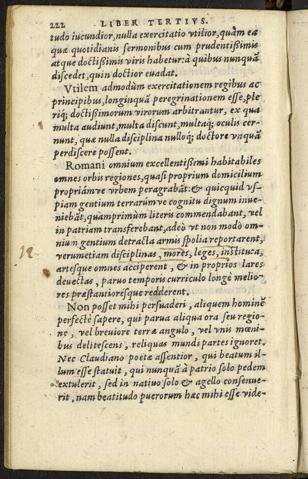 222 LIBER TERTIVS.
tudo iucundior, nulla exercitatio vtilior, quàm ea
quæ quotidianis sermonibus cum prudentißimis
atque doctißimis viris habetur: à quibus nunquā
discedet, quin doctior euadat.
Vtilem admodùm exercitationem regibus ac
principibus, longinquā peregrinationem esse, ple
riq; doctißimorum virorum arbitrantur, ex qua
multa audiunt, multa discunt, multaq; oculis cer-
nunt, quæ nulla disciplina nulloq; doctore vnquā
perdiscere possent.
Romani omnium excellentißimi habitabiles
omnes orbis regiones, quasi proprium domicilium
propriámve vrbem peragrabāt: & quicquid vs-
piam gentium terrarúmve cognitu dignum inue-
niebāt, quamprimùm literis commendabant, vel
in patriam transferebant, adeò vt non modò om-
nium gentium detracta armis spolia reportarent,
verumetiam disciplinas, mores, leges, instituta,
artesque omnes acciperent, & in proprios lares
deuectas, paruo temporis curriculo longè melio-
res præstantioresque redderent.
Non posset mihi persuaderi, aliquem hominē
perfectè sapere, qui parua aliqua ora seu regio-
ne, vel breuiore terræ angulo, vel vnis mœni-
bus delitescens, reliquas mundi partes ignoret.
Nec Claudiano poetæ assentior, qui beatum il-
lum esse statuit, qui nunquā à patrio solo pedem
extulerit, sed in natiuo solo & agello consenue-
rit, nam beatitudo puerorum hæc mihi esse vide-